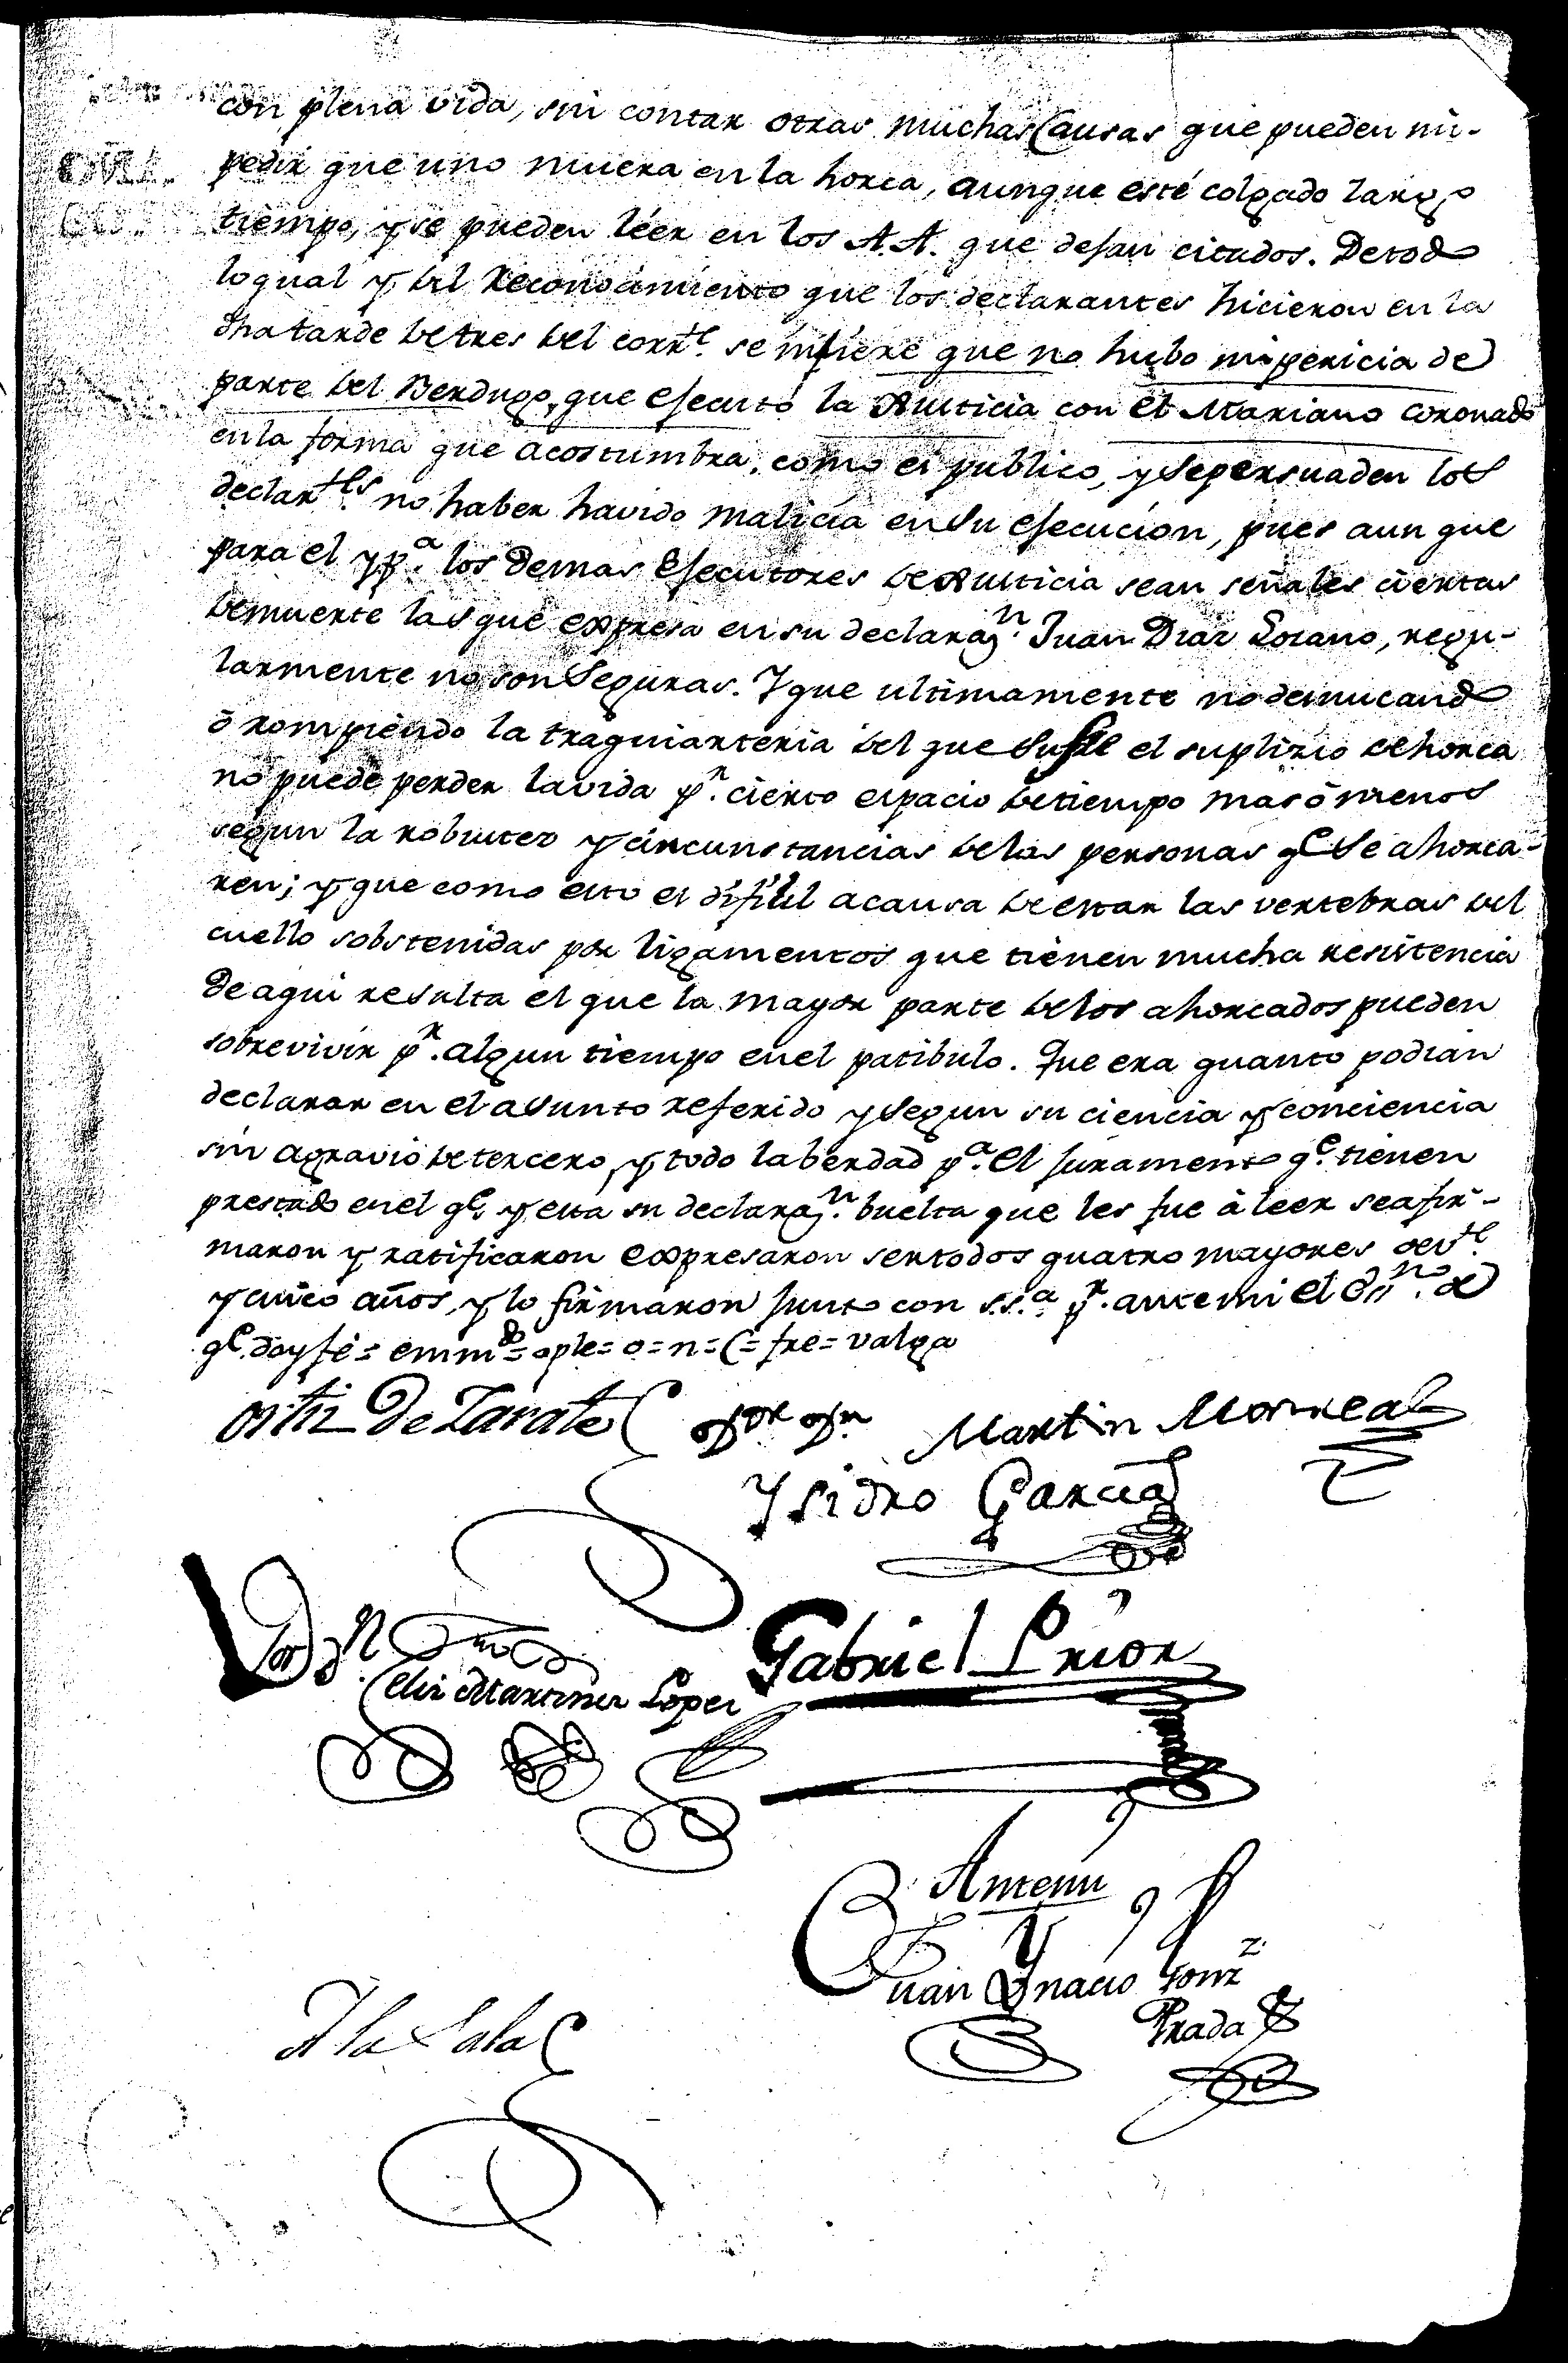 con plena vida, sin contar otras muchas Causas que pueden im-
pedir que uno muera en la horca, aunque esté colgado largo
tiempo, y se pueden léer en los A.A. que dejan citados. De todo
lo qual y del Reconocimiento que los declarantes hicieron en la
dha tarde de tres del corrte. se infiere que no hubo impericia de
parte del Berdugo, que ejecutó la Justicia con el Mariano Coronado
en la forma que acostumbra, como es publico, y se persuaden los
declartes. no haber havido malicia en su ejecucion, pues aun que
para el y pa. los demas Ejecutores de Justicia sean señales ciertas
de muerte las que expresa en su declarazn. Juan Diaz Lozano, regu-
larmente no son seguras. Y que ultimamente no desnucando
ó rompiendo la traquiarteria del que sufre el suplizio de horca
no puede perder la vida pr. cierto espacio de tiempo mas ó menos
segun la robustez y circunstancias de las personas qe. se ahorca-
ren; y que como esto es dificil a causa de estar las vertebras del
cuello sobstenidas por ligamentos que tienen mucha resistencia
de aqui resulta el que la mayor parte de los ahorcados pueden
sobrevivir pr. algun tiempo en el patibulo. Que era quanto podian
declarar en el asunto referido y segun su ciencia y conciencia
sin agravio de tercero, y todo la berdad pa. el juramento qe. tienen
prestado en el qe. y esta su declarazn. buelta que les fue à leer se afir-
maron y ratificaron expresaron ser todos quatro mayores de vte.
y cinco años, y lo firmaron junto con s.s.a pr. ante mi el Essno. de
qe. doy fé = emmdo = ople = o = n = C = fre = valga
Ortiz De Zarate
Martin Monreal
Ysidro Garcia
Gabriel Prior
Martinez Lopez
Antemi
Juan Ygnacio Gonz
Prada
A la Sala